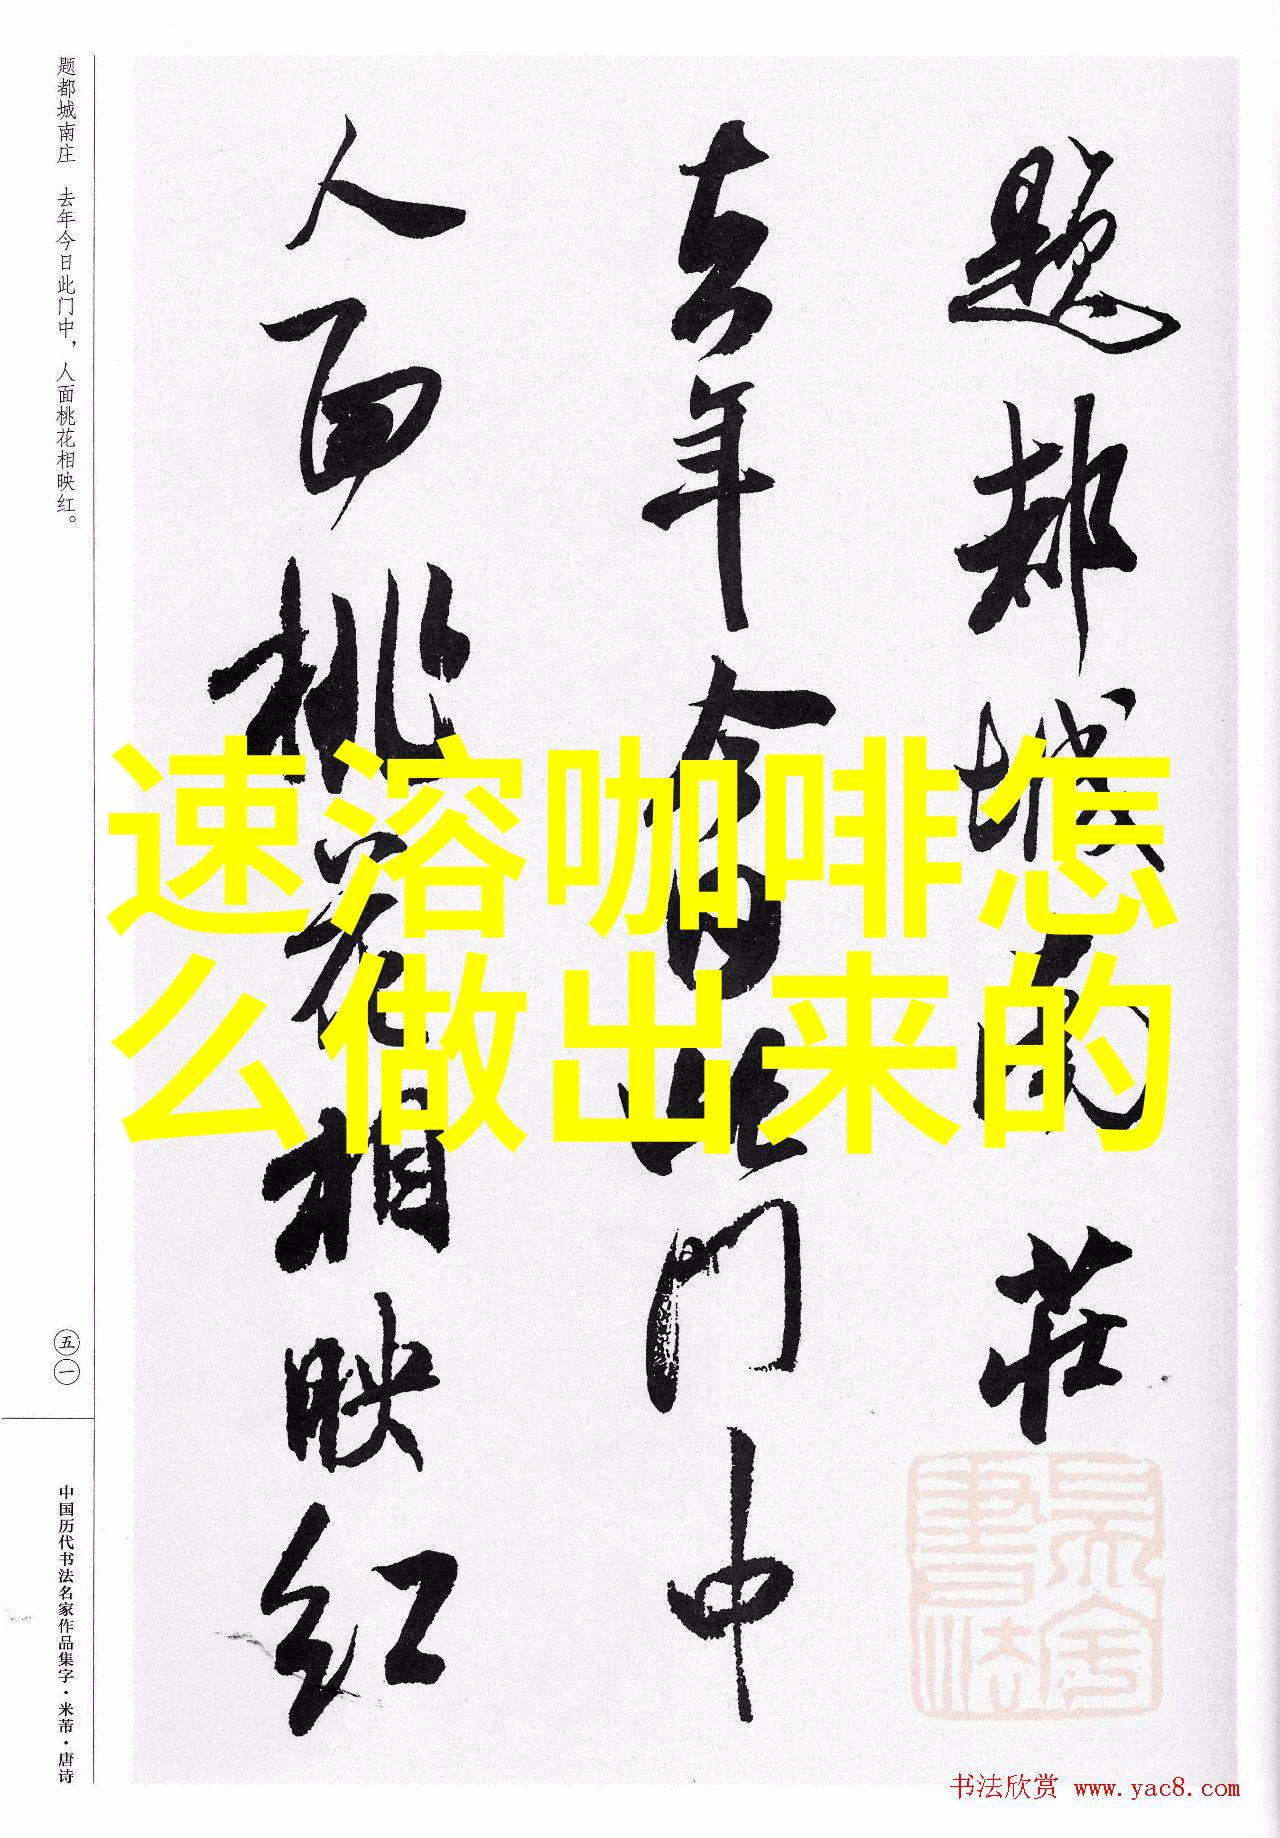 题都城南庄 去年今日此门中，人面桃花相映红。
五一
中国历代书法名家作品集字·米芾·唐诗
题都城南莊
去年今日此门中
人面桃花相映红
速溶咖啡怎
么做出来的
书法欣赏 www.yac8.com